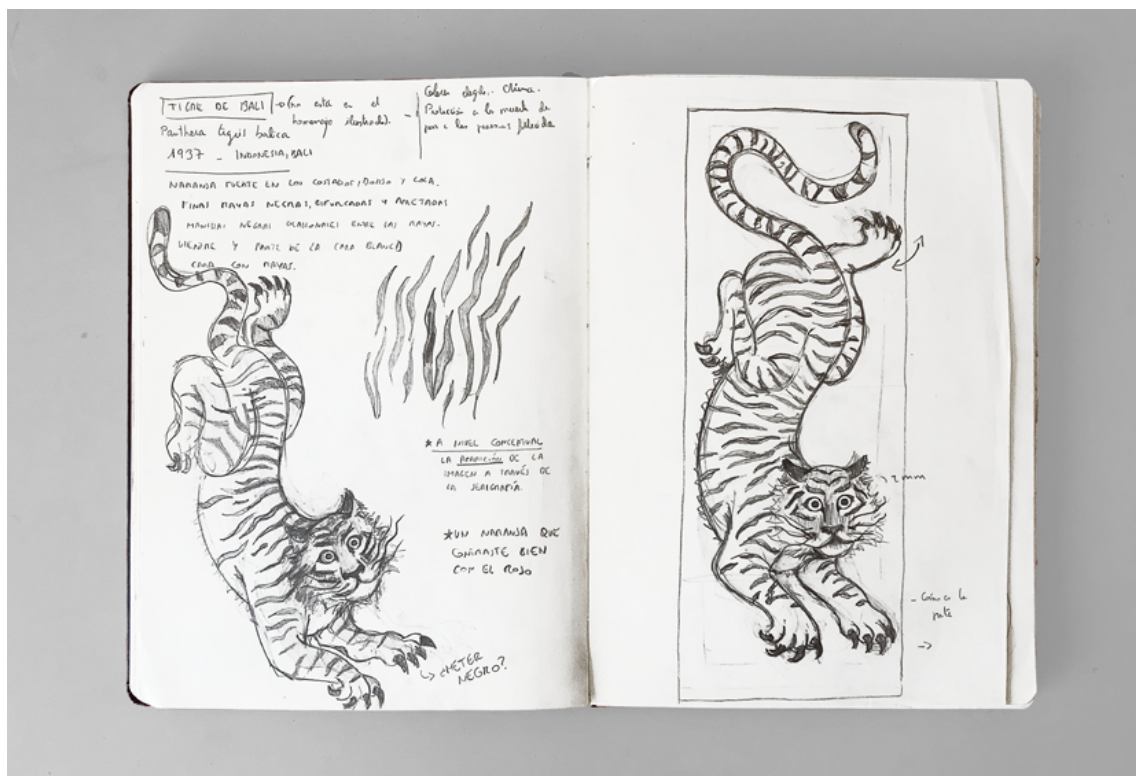 TIGRE DE BALI → Gran está en el
homenaje ilustrado. –
Panthera tigris balica
1937 – INDONESIA, BALI
China.
Protección a la muerte de
para a las personas fallecida
NARANJA FUERTE EN LOS COSTADOS, DORSO Y COLA.
FINAS RAYAS NEGRAS, BIFURCADAS Y APRETADAS
MANCHAS NEGRAS OCASIONALES ENTRE LAS RAYAS.
VIENTRE Y PARTE DE LA CARA BLANCO
CARA CON RAYAS.
*A NIVEL CONCEPTUAL
LA APARICIÓN DE LA
IMAGEN A TRAVÉS DE
LA SERIGRAFÍA.
*UN NARANJA QUE
CONTRASTE BIEN
CON EL ROJO
↳ ¿METER
NEGRO?
2mm
– la
→